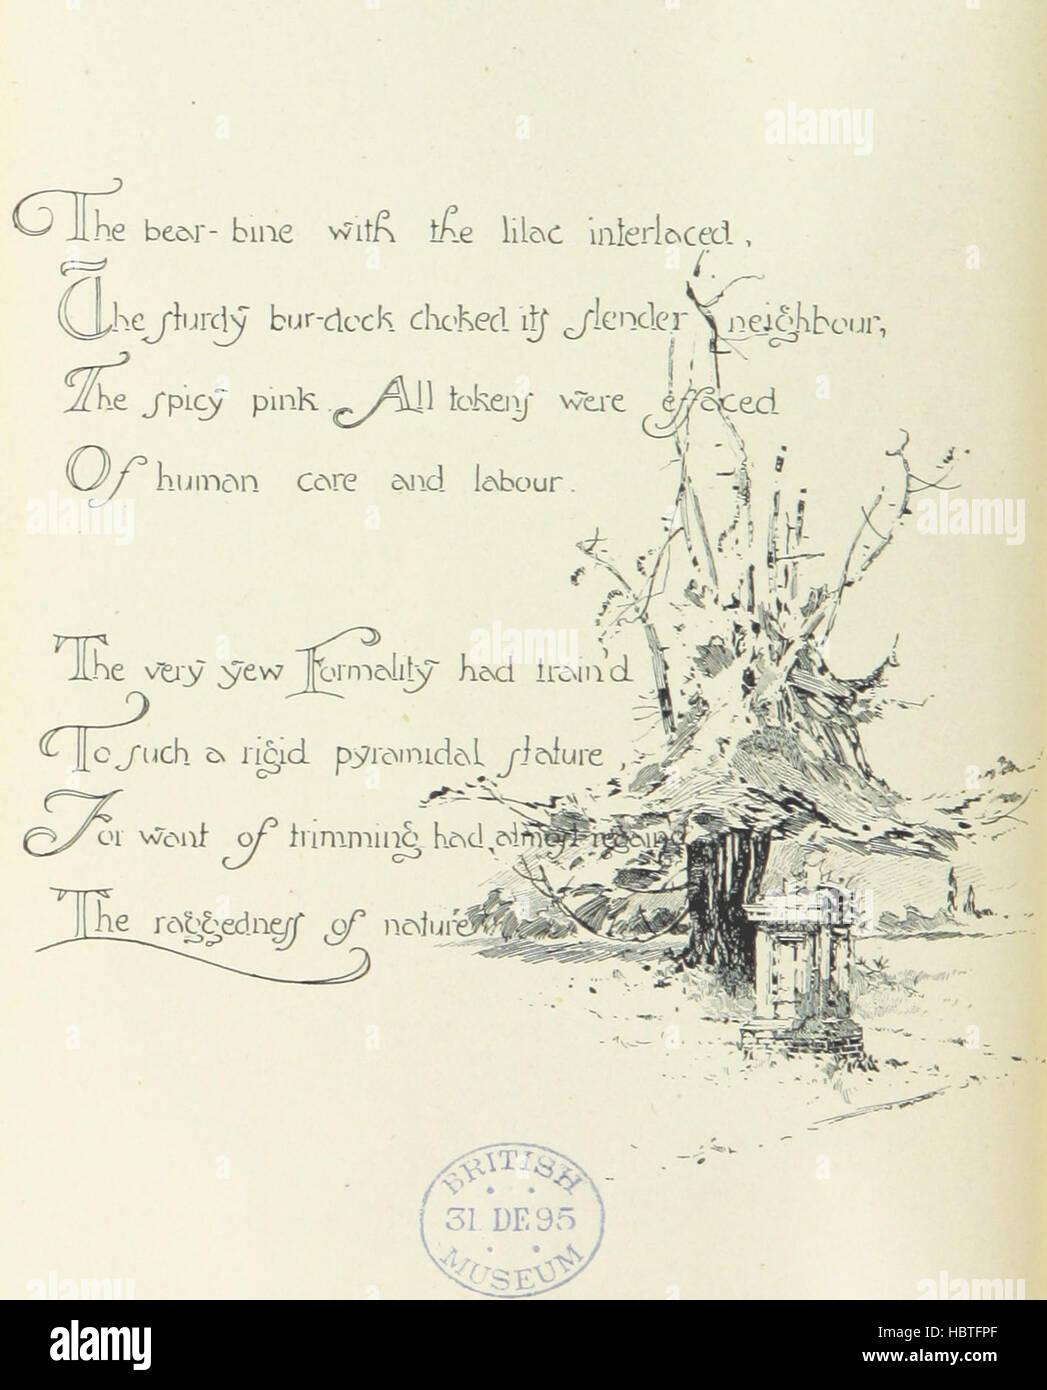 The bear-bine with the lilac interlaced,
The sturdy bur-dock choked its slender neighbour,
The spicy pink. All tokens were effaced
Of human care and labour.
The very yew Formality had train'd
To such a rigid pyramidal stature,
For want of trimming had almost regain'd
The raggedness of nature
BRITISH
31 DE 95
MUSEUM
a
a
alamy
a
alamy
a
alamy
alamy
a
a
a
a
a
alamy
alamy
alamy
Image ID: HBTFPF
www.alamy.com